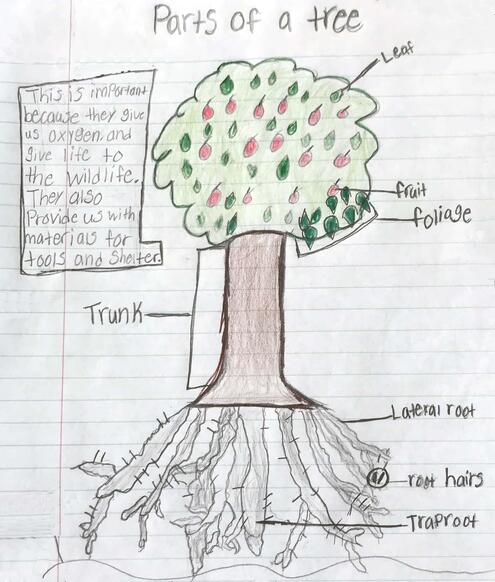 Parts of a tree
Leaf
This is important
because they give
us oxygen and
give life to
the wildlife.
They also
Provide us with
materials for
tools and Shelter.
fruit
foliage
Trunk
Lateral root
root hairs
Traproot